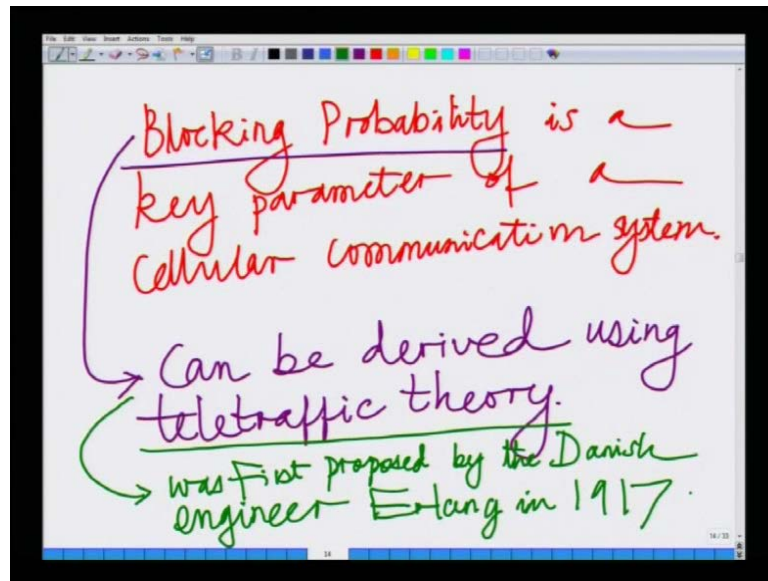 File Edit View Insert Actions Tools Help
Blocking Probability is a
key parameter of a
cellular communication system.
Can be derived using
teletraffic theory.
was First proposed by the Danish
engineer Erlang in 1917.
14
14/33